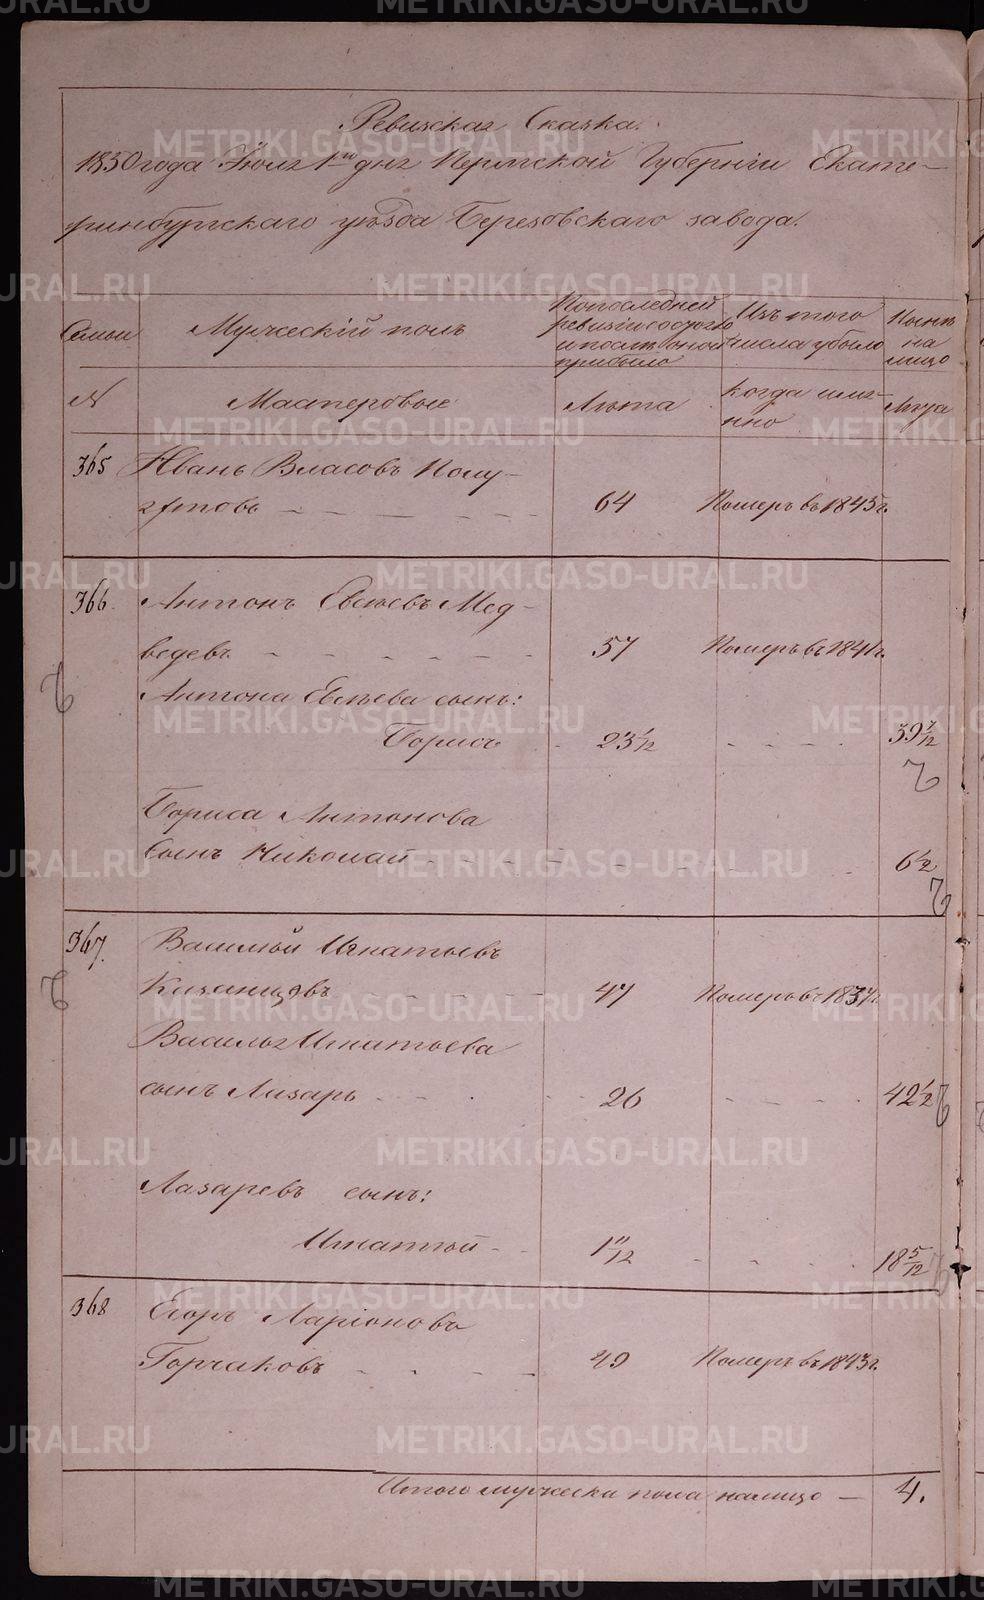 Ревизская Сказка.
1850 года Июля 1го дня Пермской Губернiи Екате-
ринбургскаго уѣзда Березовскаго завода.
Семьи
Мужескiй полъ
По последней
ревизiи состояло
и после оной
прибыло
Изъ того
числа убыло
Нынѣ
на
лицо
№
Мастеровые
Лѣта
когда име-
нно
Лѣта
365
Иванъ Власовъ Полу-
ектовъ
64
Померъ въ 1845 г.
366.
Антонъ Евсѣевъ Мед-
ведевъ
57
Померъ въ 1841 г.
Антона Евсѣева сынъ:
Борисъ
23 1/12
39 7/12
Бориса Антонова
Сынъ Николай
6 1/2
367.
Василiй Игнатьевъ
Казанцовъ
47
Померъ въ 1837 г.
Василья Игнатьева
сынъ Лазарь
26
42 1/2
Лазаревъ сынъ:
Игнатiй
1 11/12
18 5/12
368
Егоръ Ларiоновъ
Горчаковъ
49
Померъ въ 1843 г.
Итого мужеска пола налицо — 4.
METRIKI.GASO-URAL.RU